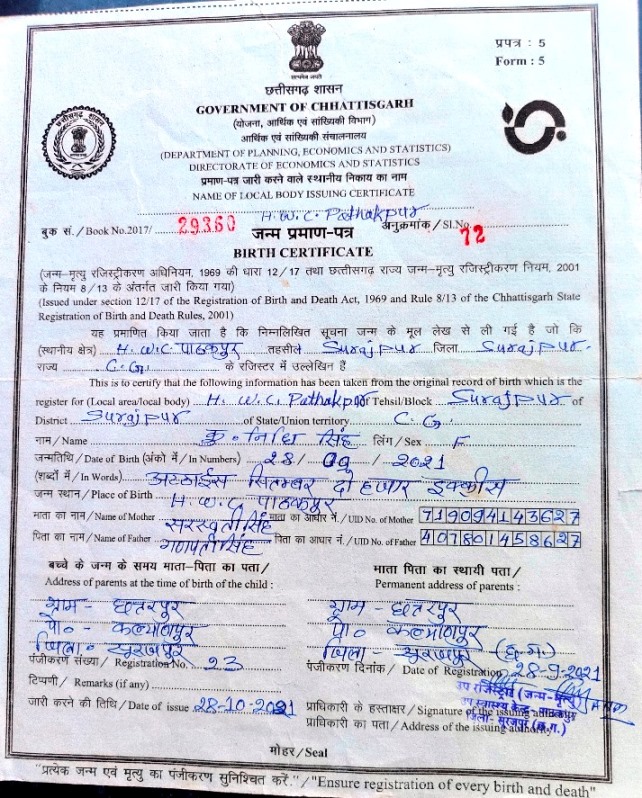 प्रपत्र : 5
Form : 5
सत्यमेव जयते
छत्तीसगढ़ शासन
GOVERNMENT OF CHHATTISGARH
(योजना, आर्थिक एवं सांख्यिकी विभाग)
आर्थिक एवं सांख्यिकी संचालनालय
(DEPARTMENT OF PLANNING, ECONOMICS AND STATISTICS)
DIRECTORATE OF ECONOMICS AND STATISTICS
प्रमाण-पत्र जारी करने वाले स्थानीय निकाय का नाम
NAME OF LOCAL BODY ISSUING CERTIFICATE
H.W.C. Pathakpur
बुक सं./Book No.2017/ 29360 जन्म प्रमाण-पत्र अनुक्रमांक/Sl.No. 72
BIRTH CERTIFICATE
(जन्म-मृत्यु रजिस्ट्रीकरण अधिनियम, 1969 की धारा 12/17 तथा छत्तीसगढ़ राज्य जन्म-मृत्यु रजिस्ट्रीकरण नियम, 2001
के नियम 8/13 के अंतर्गत जारी किया गया)
(Issued under section 12/17 of the Registration of Birth and Death Act, 1969 and Rule 8/13 of the Chhattisgarh State
Registration of Birth and Death Rules, 2001)
यह प्रमाणित किया जाता है कि निम्नलिखित सूचना जन्म के मूल लेख से ली गई है जो कि
(स्थानीय क्षेत्र) H.W.C पाठकपुर तहसील Surajpur जिला Surajpur.
राज्य C.G. के रजिस्टर में उल्लेखित है
This is to certify that the following information has been taken from the original record of birth which is the
register for (Local area/local body) H.W.C. Pathakpur of Tehsil/Block Surajpur of
District Surajpur of State/Union territory C.G.
नाम/Name कु० निधि सिंह लिंग/Sex F
जन्मतिथि/Date of Birth (अंको में/In Numbers) 28/09/2021
(शब्दों में/In Words) अट्ठाईस सितम्बर दो हजार इक्कीस
जन्म स्थान/Place of Birth H.W.C पाठकपुर
माता का नाम/Name of Mother सरस्वती सिंह माता का आधार नं./UID No. of Mother 719094143627
पिता का नाम/Name of Father गणपती सिंह पिता का आधार नं./UID No. of Father 407801458627
बच्चे के जन्म के समय माता-पिता का पता/ माता पिता का स्थायी पता/
Address of parents at the time of birth of the child : Permanent address of parents :
ग्राम - छतरपुर ग्राम - छतरपुर
पो० - कल्याणपुर पो० - कल्याणपुर
जिला - सूरजपुर जिला - सूरजपुर (छ.ग.)
पंजीकरण संख्या/Registration No. 23 पंजीकरण दिनांक/Date of Registration 28-9-2021
टिप्पणी/Remarks (if any) उप रजिस्ट्रार (जन्म-मृत्यु)
जारी करने की तिथि/Date of issue 28-10-2021 प्राधिकारी के हस्ताक्षर/Signature of the issuing authority
उप स्वास्थ्य केन्द्र
जिला- सूरजपुर (छ.ग.)
प्राधिकारी का पता/Address of the issuing authority
मोहर/Seal
"प्रत्येक जन्म एवं मृत्यु का पंजीकरण सुनिश्चित करें."/"Ensure registration of every birth and death"